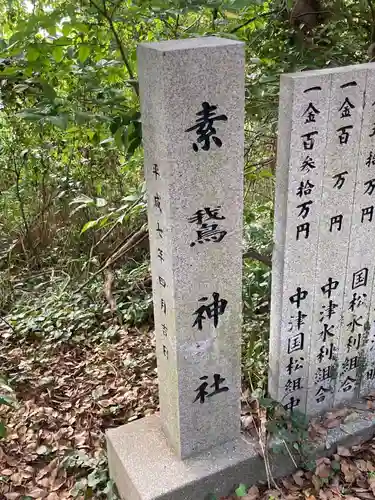 素鵞神社
平成七年四月吉
拾万円 国松水利組合
一金百万円 中津水利組合
一金百参拾万円 中津国松組